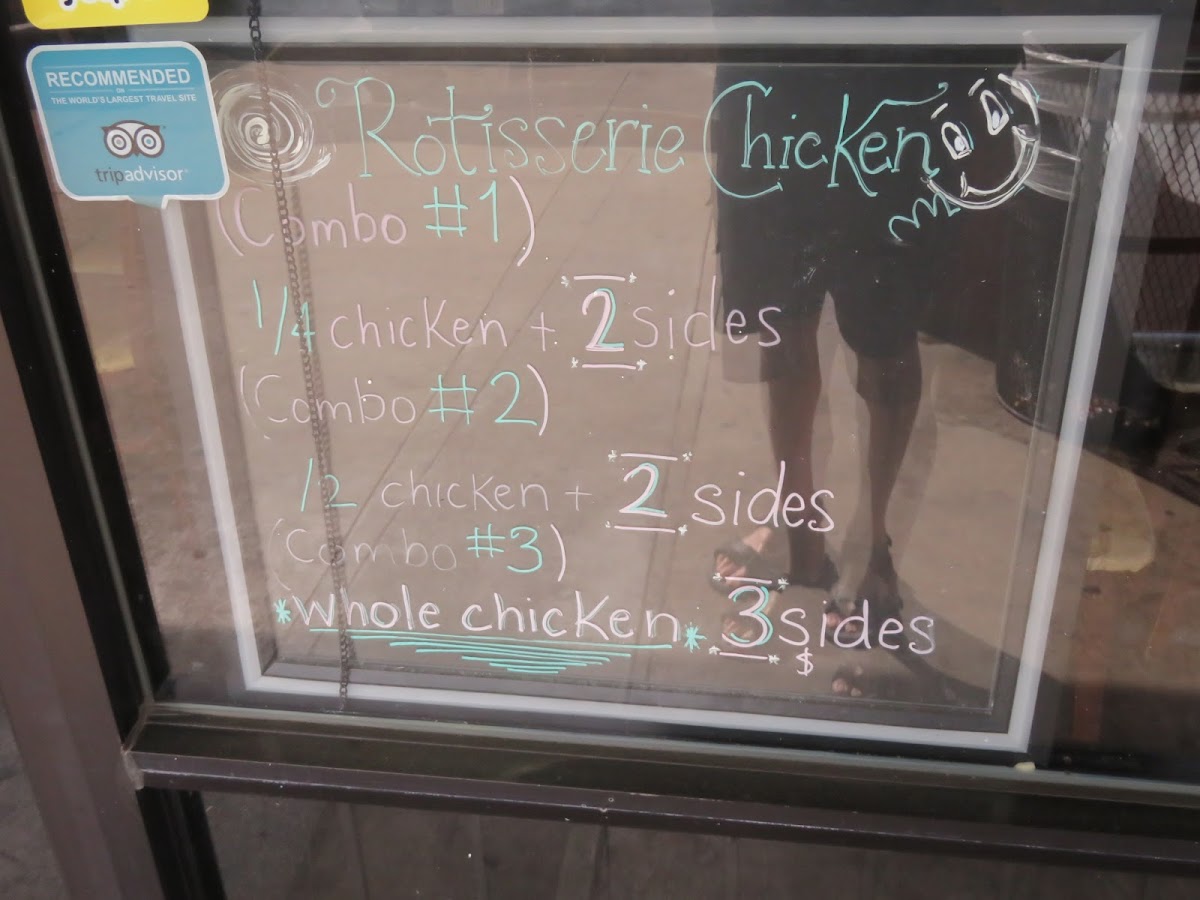 RECOMMENDED
ON
THE WORLD'S LARGEST TRAVEL SITE
tripadvisor
Rotisserie Chicken
(Combo #1)
1/4 chicken + 2 sides
(Combo #2)
1/2 chicken + 2 sides
(Combo #3)
*whole chicken* 3 sides
$